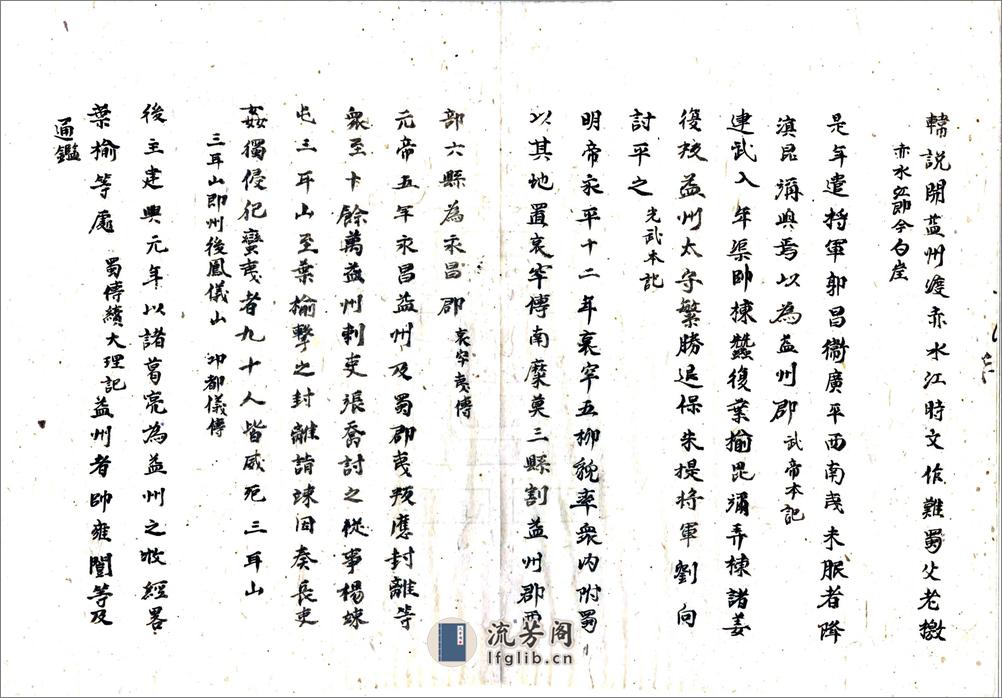 韓說開益州渡赤水江時文作難蜀父老檄
赤水江即今白崖
是年遣將軍郭昌衛廣平西南夷未服者降
滇昆滿與焉以為益州郡 武帝本記
建武入年渠帥棟蠶復葉榆毘彌弄棟諸姜
復殺益州太守繁勝退保朱提將軍劉向
討平之 光武本記
明帝永平十二年哀牢五柳貌率衆內附蜀
以其地置哀牢傳南縻莫三縣割益州郡西
部六縣為永昌郡 哀牢夷傳
元帝五年永昌益州及蜀郡夷叛應封離等
衆至十餘萬益州刺吏張喬討之從事楊竦
屯三耳山至葉榆擊之封離詣竦囙奏長吏
姦獨侵犯蠻夷者九十人皆咸死三耳山
三耳山即州後鳳儀山 卭都儀傳
後主建興元年以諸葛亮為益州之牧經畧
葉榆等處 蜀傳續大理記 益州者帥雍闓等及
通鑑
流芳阁
lfglib.cn